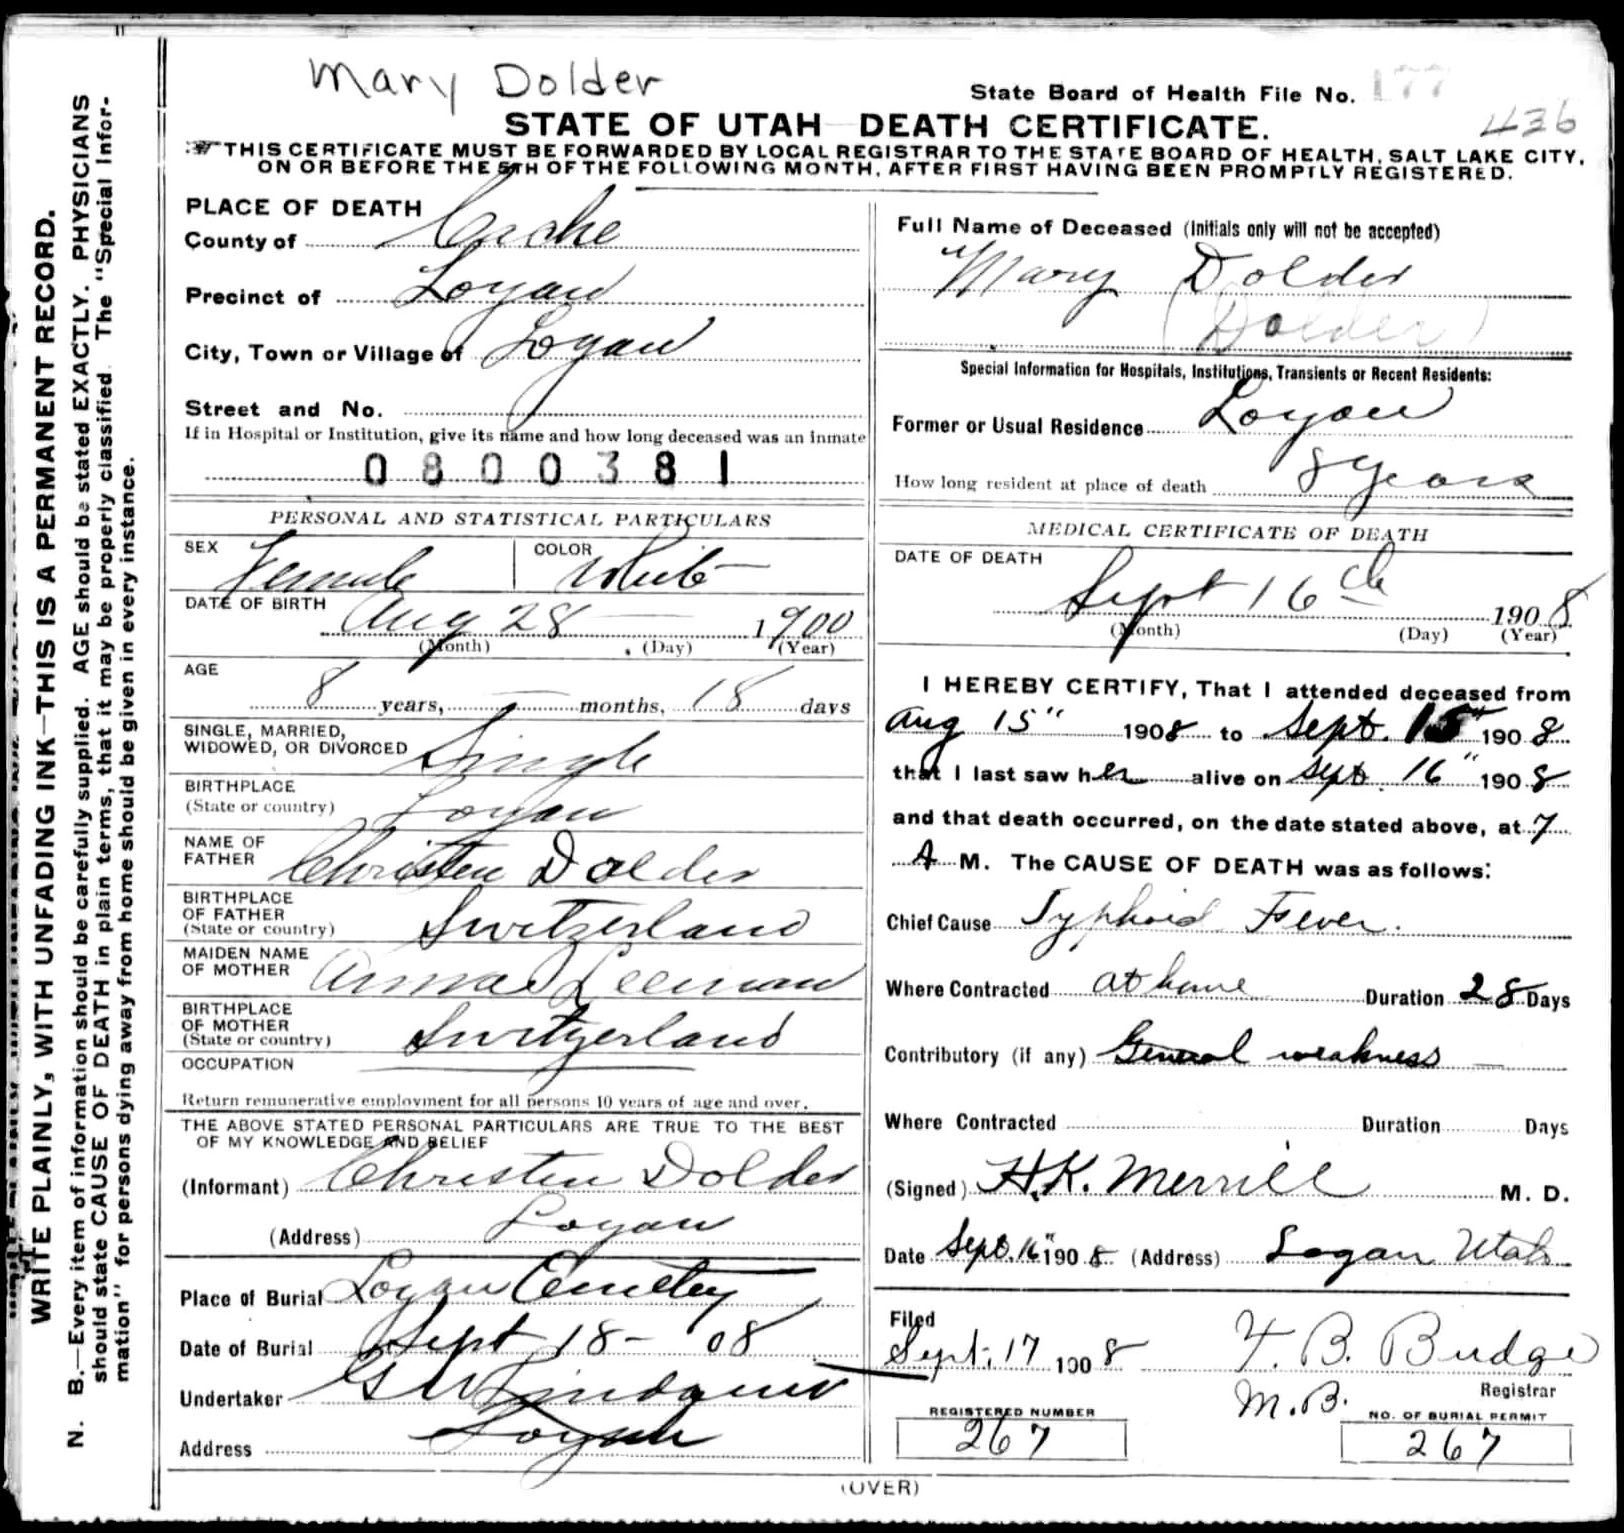 Mary Dolder
State Board of Health File No. 177
436
STATE OF UTAH—DEATH CERTIFICATE.
THIS CERTIFICATE MUST BE FORWARDED BY LOCAL REGISTRAR TO THE STATE BOARD OF HEALTH, SALT LAKE CITY,
ON OR BEFORE THE 5TH OF THE FOLLOWING MONTH, AFTER FIRST HAVING BEEN PROMPTLY REGISTERED.
WRITE PLAINLY, WITH UNFADING INK—THIS IS A PERMANENT RECORD.
N. B.—Every item of information should be carefully supplied. AGE should be stated EXACTLY. PHYSICIANS
should state CAUSE OF DEATH in plain terms, that it may be properly classified. The "Special Infor-
mation" for persons dying away from home should be given in every instance.
PLACE OF DEATH
County of Cache
Precinct of Logan
City, Town or Village of Logan
Street and No.
If in Hospital or Institution, give its name and how long deceased was an inmate
0800381
PERSONAL AND STATISTICAL PARTICULARS
SEX Female COLOR White
DATE OF BIRTH
Aug 28 1900
(Month) (Day) (Year)
AGE
8 years, — months, 18 days
SINGLE, MARRIED,
WIDOWED, OR DIVORCED Single
BIRTHPLACE
(State or country) Logan
NAME OF
FATHER Christen Dolder
BIRTHPLACE
OF FATHER
(State or country) Switzerland
MAIDEN NAME
OF MOTHER Anna Leeman
BIRTHPLACE
OF MOTHER
(State or country) Switzerland
OCCUPATION
Return remunerative employment for all persons 10 years of age and over.
THE ABOVE STATED PERSONAL PARTICULARS ARE TRUE TO THE BEST
OF MY KNOWLEDGE AND BELIEF
(Informant) Christen Dolder
(Address) Logan
Place of Burial Logan Cemetey
Date of Burial Sept 18 - 08
Undertaker G W Lindquist
Address Logan
Full Name of Deceased (Initials only will not be accepted)
Mary Dolder
(Dolder)
Special Information for Hospitals, Institutions, Transients or Recent Residents:
Former or Usual Residence Logan
How long resident at place of death 8 Years
MEDICAL CERTIFICATE OF DEATH
DATE OF DEATH
Sept 16th 1908
(Month) (Day) (Year)
I HEREBY CERTIFY, That I attended deceased from
Aug 15" 1908 to Sept. 15" 1908
that I last saw her alive on Sept. 16" 1908
and that death occurred, on the date stated above, at 7
A M. The CAUSE OF DEATH was as follows:
Chief Cause Typhoid Fever.
Where Contracted at home Duration 28 Days
Contributory (if any) General weakness —
Where Contracted Duration Days
(Signed) H.K. Merrill M. D.
Date Sept. 16" 1908 (Address) Logan Utah
Filed
Sept. 17 1908 F. B. Budge
Registrar
M.B.
REGISTERED NUMBER
267
NO. OF BURIAL PERMIT
267
(OVER)